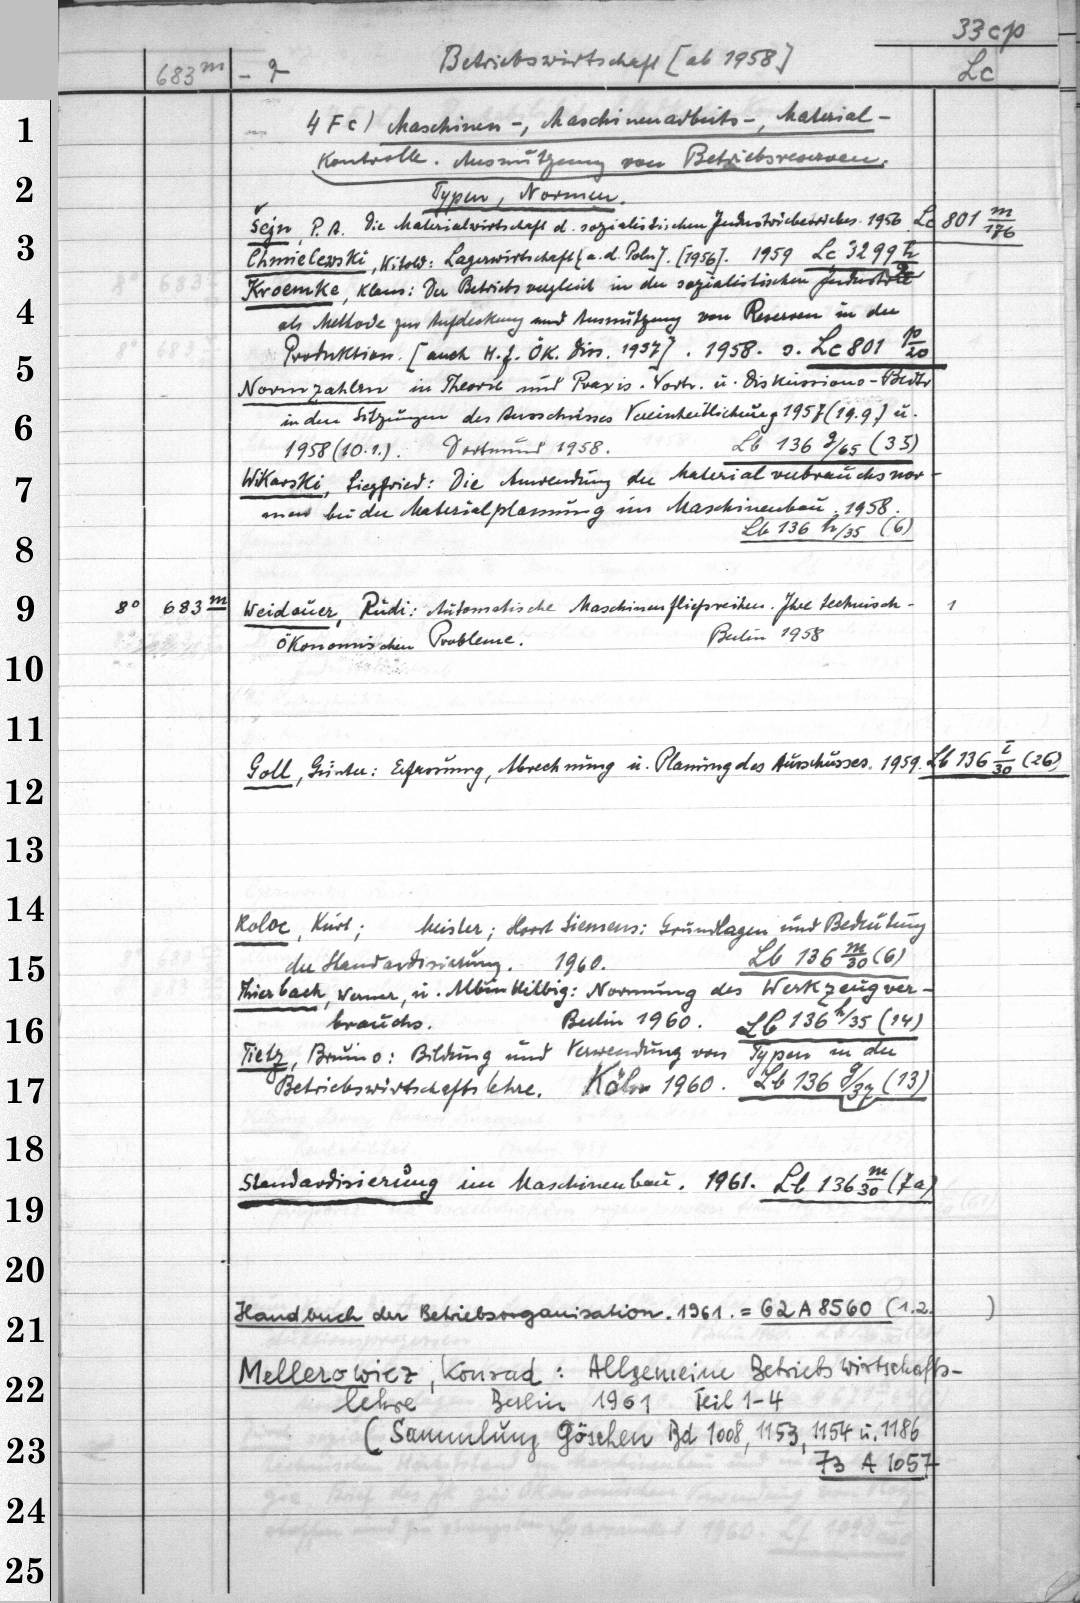 33cp
683 m - q Betriebswirtschaft [ab 1958] Lc
1 4 F c) Maschinen-, Maschinenarbeits-, Material-
Kontrolle. Ausnützung von Betriebsreserven.
2 Typen, Normen.
Šejn, P. A. Die Materialwirtschaft d. sozialistischen Industriebetriebes. 1956 Lc 801 m/176
3 Chmielewski, Witold: Lagerwirtschaft [a. d. Poln]. [1956]. 1959 Lc 3299
Kroemke, Klaus: Der Betriebsvergleich in der sozialistischen Industrie
4 als Methode zur Aufdeckung und Ausnützung von Reserven in der
Produktion. [auch H. f. ÖK. Diss. 1957]. 1958. s. Lc 801 p/20
5 Normzahlen in Theorie und Praxis. Vortr. u. Diskussions-Beitr
6 in den Sitzungen des Ausschusses Vereinheitlichung 1957 (19.9.) u.
1958 (10.1.). Dortmund 1958. Lb 136 g/65 (35)
7 Wikarski, Siegfried: Die Anwendung der Materialverbrauchsnor-
men bei der Materialplanung im Maschinenbau. 1958.
8 Lb 136 h/35 (6)
9 8° 683 m Weidauer, Rudi: Automatische Maschinenfließreihen. Ihre technisch- 1
ökonomischen Probleme. Berlin 1958
10
11
12 Goll, Günter: Erfassung, Abrechnung u. Planung des Ausschusses. 1959. Lb 136 i/30 (26)
13
14 Koloc, Kurt; Meister; Horst Siemens: Grundlagen und Bedeutung
15 der Standardisierung. 1960. Lb 136 m/30 (6)
Thierbach, Werner, u. Albin Hilbig: Normung des Werkzeugver-
16 brauchs. Berlin 1960. Lb 136 h/35 (14)
Tietz, Bruno: Bildung und Verwendung von Typen in der
17 Betriebswirtschaftslehre. Köln 1960. Lb 136 g/37 (13)
18
19 Standardisierung im Maschinenbau. 1961. Lb 136 m/30 (7a)
20
21 Handbuch der Betriebsorganisation. 1961. = G2 A 8560 (1.2. )
22 Mellerowicz, Konrad: Allgemeine Betriebswirtschafts-
lehre Berlin 1961 Teil 1-4
23 (Sammlung Göschen Bd 1008, 1153, 1154 u. 1186
73 A 1057
24
25